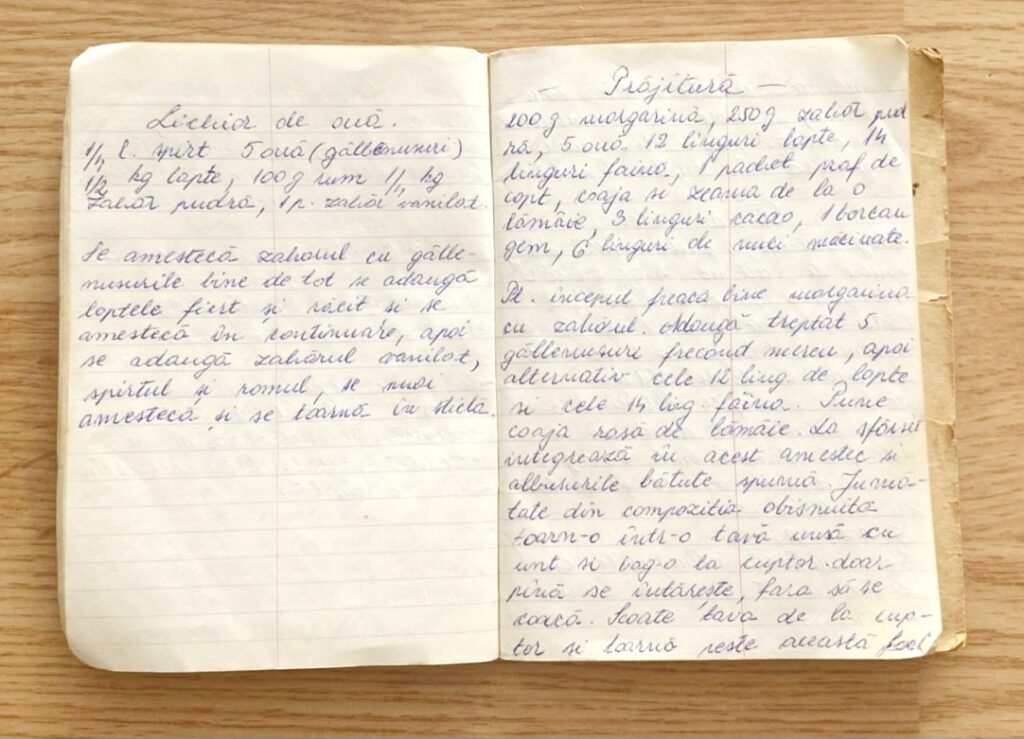 Lichior de ouă.
1/4 l. spirt 5 ouă (gălbenusuri)
1/2 kg lapte, 100 g rum 1/4 kg
Zahăr pudră, 1 p. zahăr vanilat.
Se amestecă zahărul cu gălbe-
nusurile bine de tot se adaugă
laptele fiert și răcit si se
amestecă în continuare, apoi
se adaugă zahărul vanilat,
spirtul și romul, se mai
amestecă și se toarnă în sticlă.
– Prăjitură –
200 g margarină, 250 g zahăr pud
ră, 5 ouă 12 linguri lapte, 14
linguri faină, 1 pachet praf de
copt, coaja si zeama de la o
lămâie, 3 linguri cacao, 1 borcan
gem, 6 linguri de nuci macinate.
Pt. început freaca bine margarina
cu zahărul. Adaugă treptat 5
gălbenusuri frecând mereu, apoi
alternativ cele 12 ling. de lapte
si cele 14 lig. făină. Pune
coaja rasă de lămâie. La sfârsit
integrează în acest amestec si
albusurile bătute spumă. Juma-
tate din compozitia obisnuita
toarn-o într-o tavă unsă cu
unt si bag-o la cuptor doar
pînă se întărește, fara să se
coacă. Scoate tava de la cup-
tor si toarnă peste această